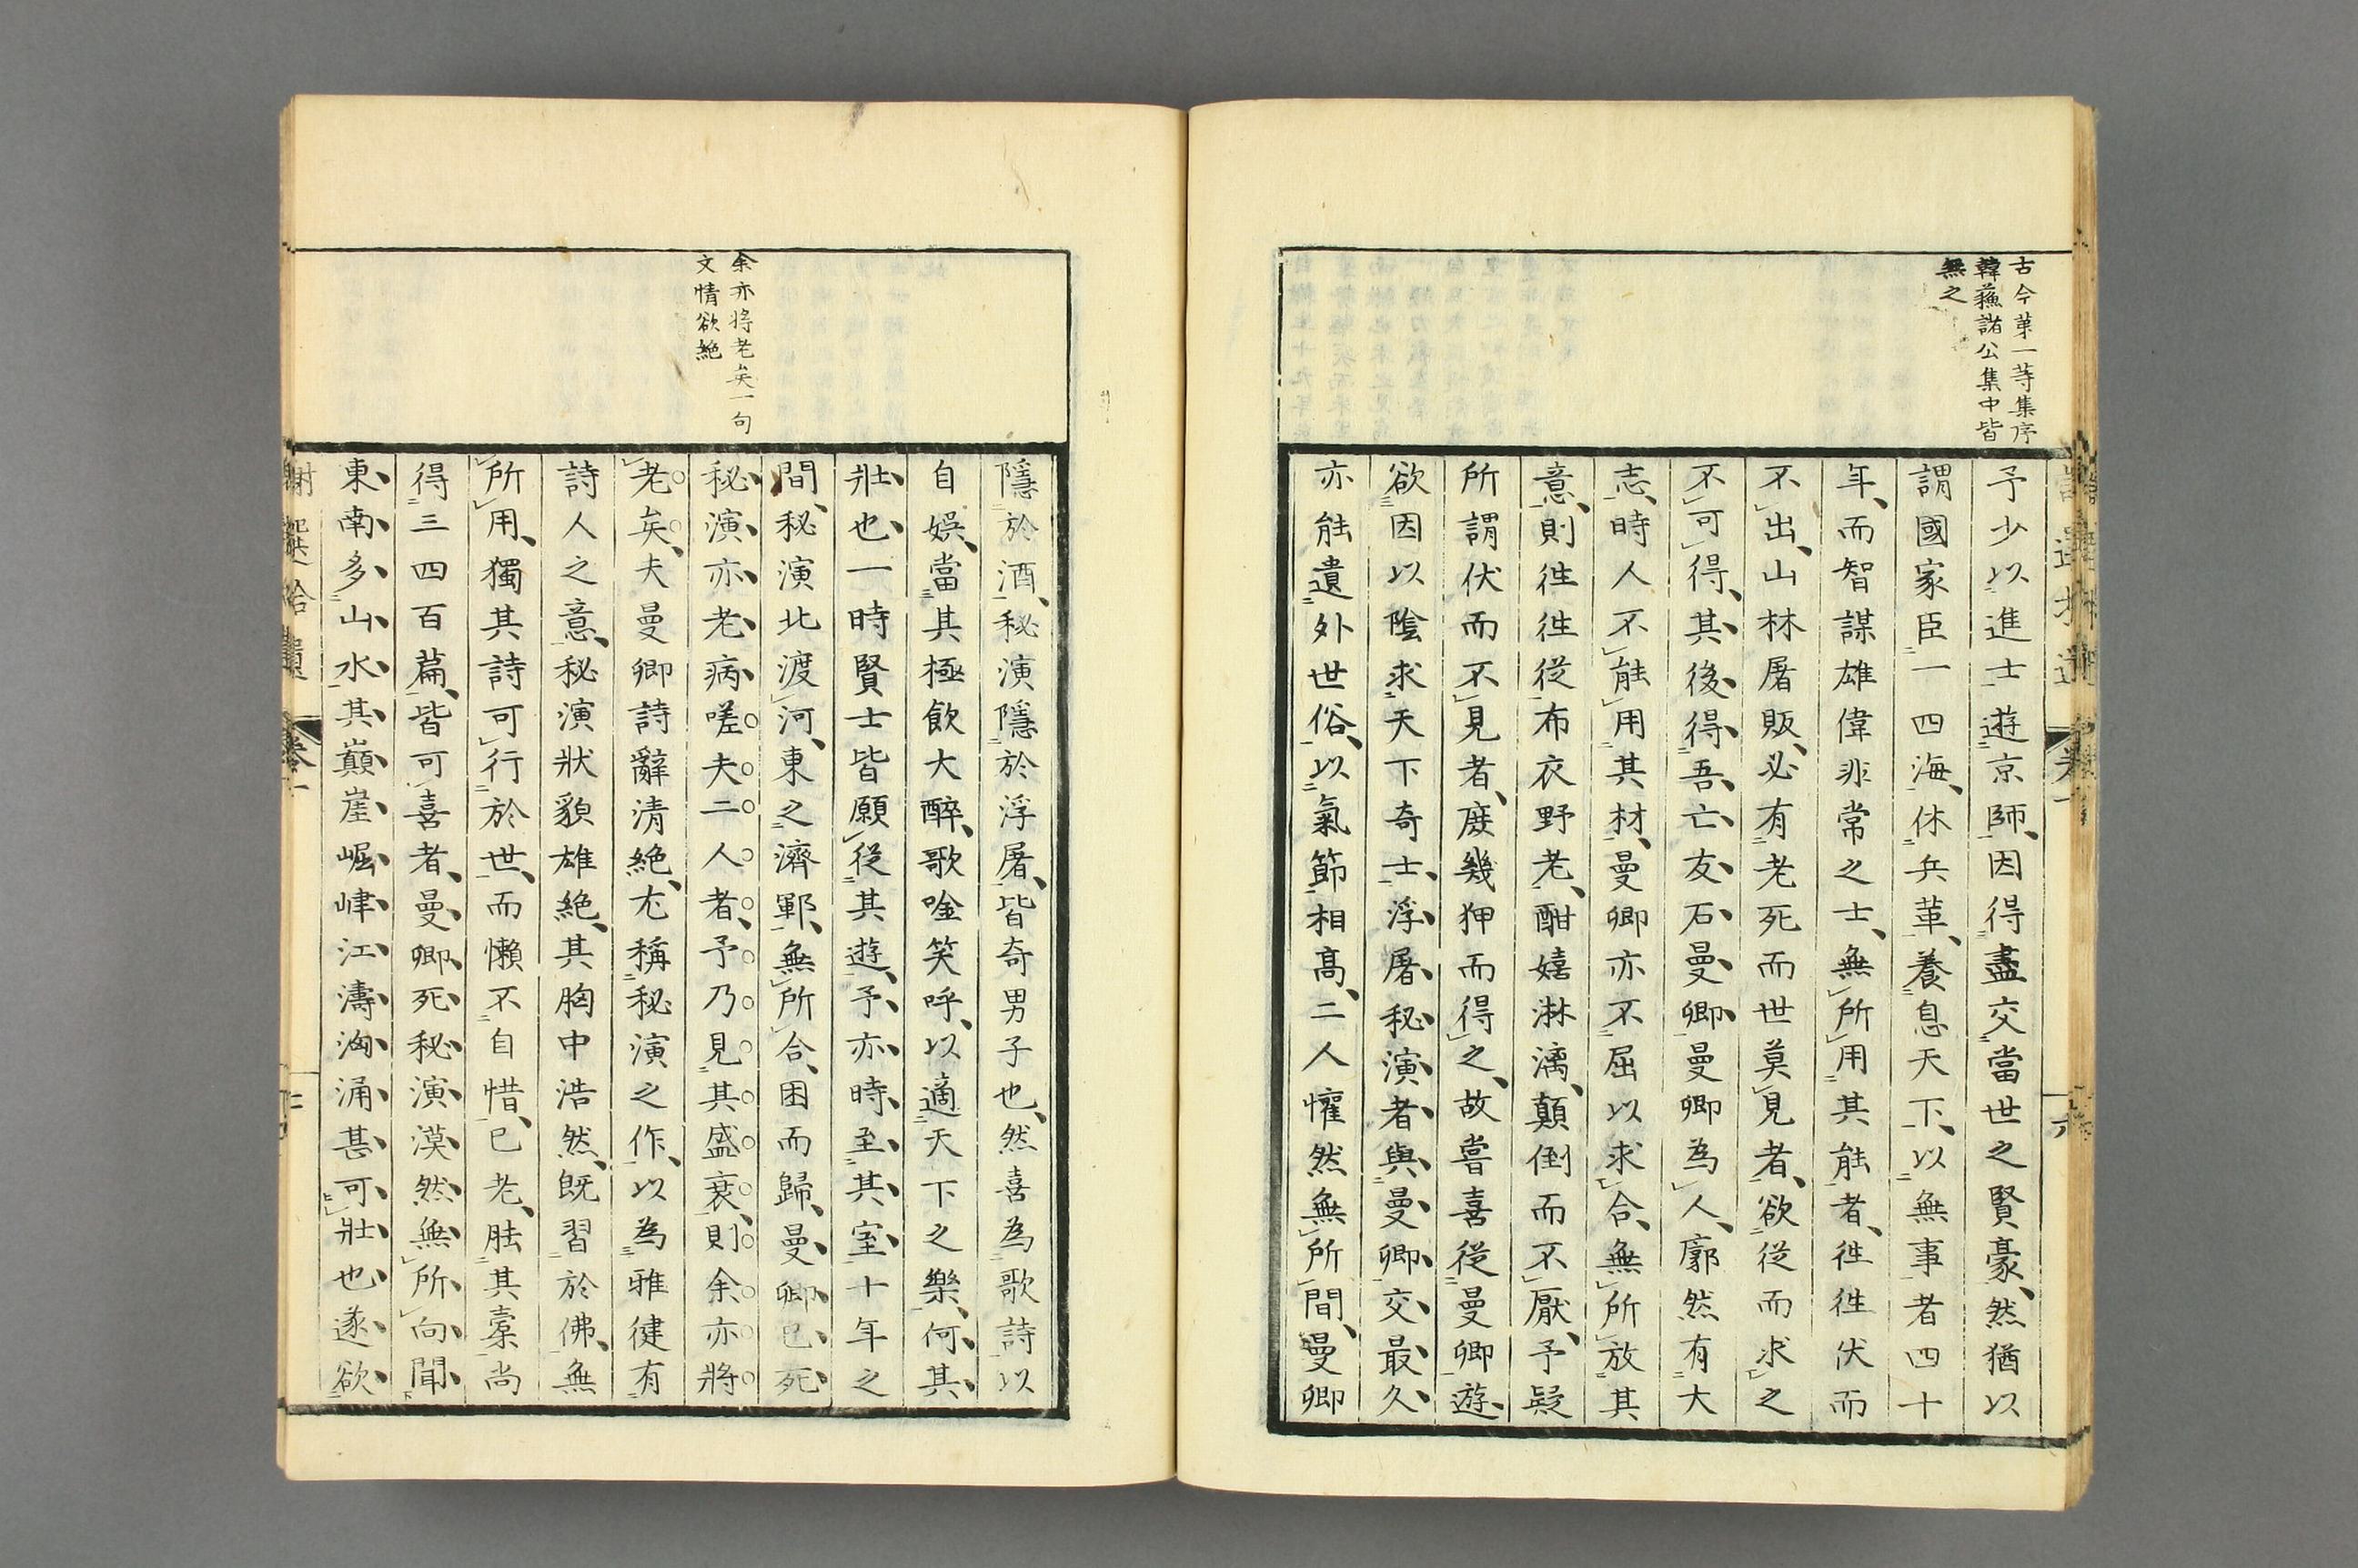 古今第一等集序
韓蘓諸公集中皆
無之
予少以進士遊京師因得盡交當世之賢豪然猶以
謂國家臣一四海休兵革養息天下以無事者四十
年而智謀雄偉非常之士無所用其能者徃徃伏而
不出山林屠販必有老死而世莫見者欲從而求之
不可得其後得吾亡友石曼卿曼卿為人廓然有大
志時人不能用其材曼卿亦不屈以求合無所放其
意則徃徃從布衣野老酣嬉淋漓顛倒而不厭予疑
所謂伏而不見者庶幾狎而得之故嘗喜從曼卿遊
欲因以陰求天下奇士浮屠秘演者與曼卿交最久
亦能遺外世俗以氣節相高二人懽然無所間曼卿
余亦將老矣一句
文情欲絶
隱於酒秘演隱於浮屠皆奇男子也然喜為歌詩以
自娛當其極飲大醉歌唫笑呼以適天下之樂何其
壯也一時賢士皆願從其遊予亦時至其室十年之
間秘演北渡河東之濟鄆無所合困而歸曼卿已死
秘演亦老病嗟夫二人者予乃見其盛衰則余亦將
老矣夫曼卿詩辭清絶尤稱秘演之作以為雅健有
詩人之意秘演狀貌雄絶其胸中浩然既習於佛無
所用獨其詩可行於世而懶不自惜已老胠其槖尚
得三四百篇皆可喜者曼卿死秘演漠然無所向聞
東南多山水其巔崖崛峍江濤洶涌甚可壯也遂欲
卷一